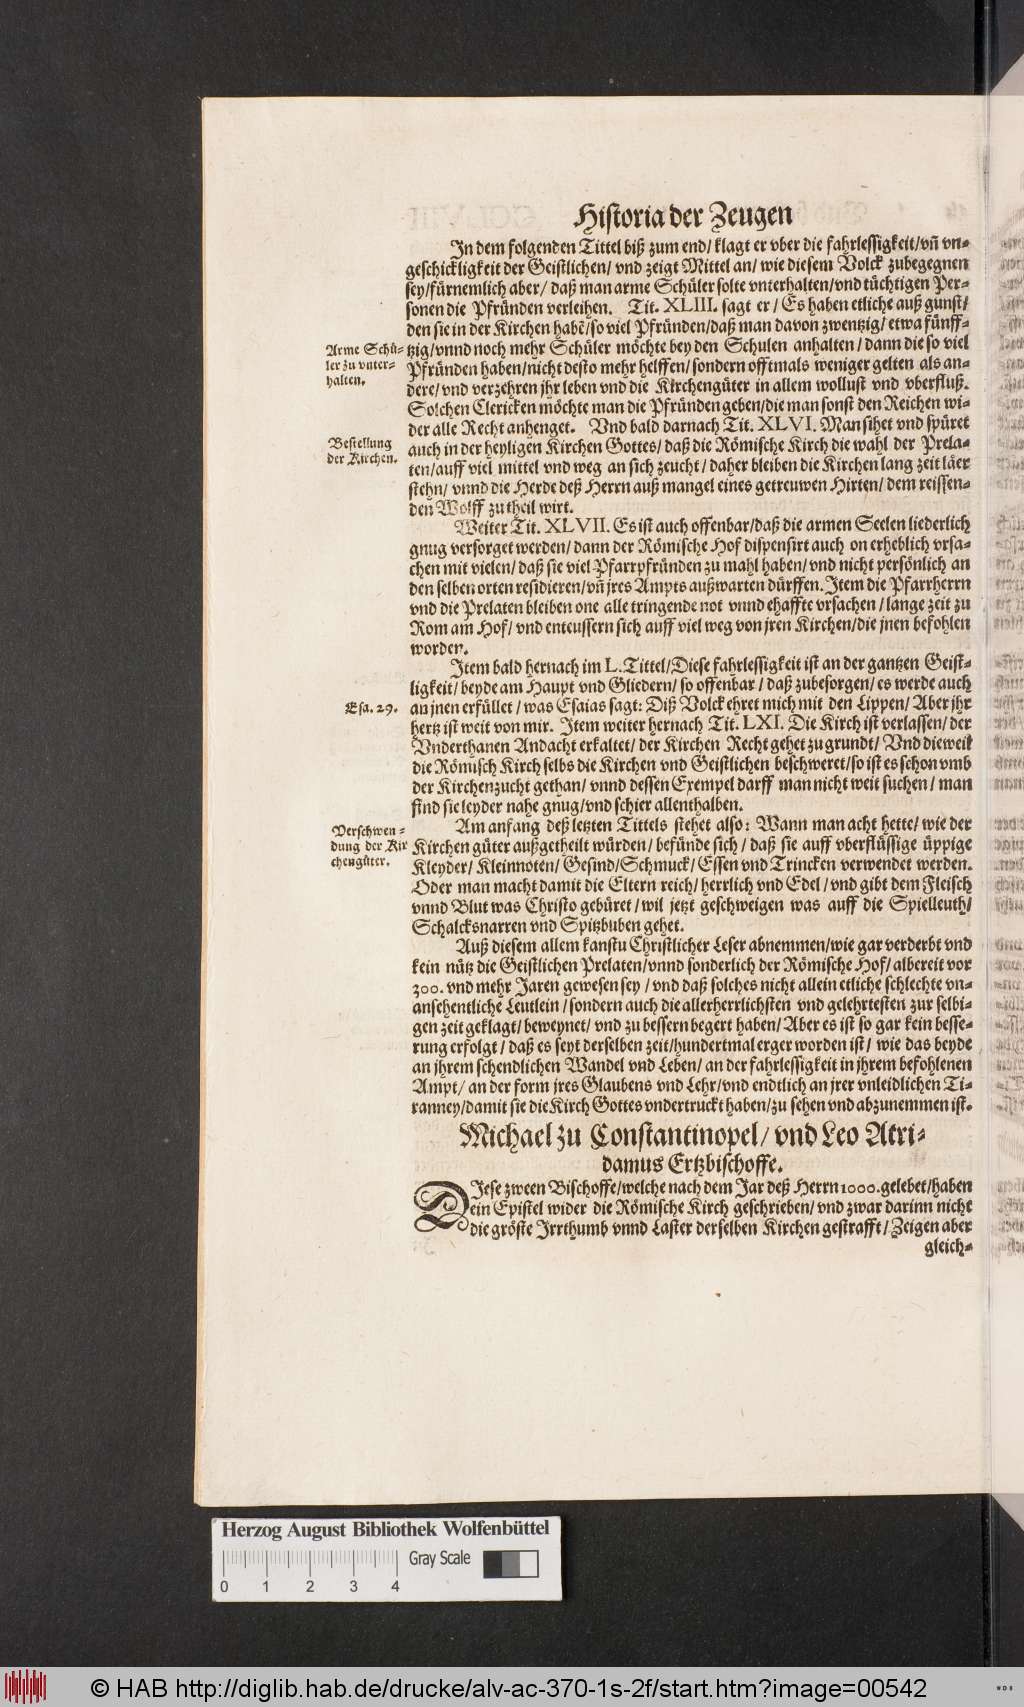 Historia der Zeugen
In dem folgenden Tittel biß zum end/ klagt er vber die fahrlessigkeit/vñ vn-
geschickligkeit der Geistlichen/ vnd zeigt Mittel an/ wie diesem Volck zubegegnen
sey/fürnemlich aber/ daß man arme Schüler solte vnterhalten/vnd tüchtigen Per-
sonen die Pfründen verleihen. Tit. XLIII. sagt er/ Es haben etliche auß gunst/
den sie in der Kirchen habẽ/so viel Pfründen/daß man davon zwentzig/ etwa fünff-
Arme Schü-
ler zu vnter-
halten.
tzig/vnnd noch mehr Schüler möchte bey den Schulen anhalten/ dann die so viel
Pfründen haben/nicht desto mehr helffen/ sondern offtmals weniger gelten als an-
dere/ vnd verzehren jhr leben vnd die Kirchengüter in allem wollust vnd vberfluß.
Solchen Clericken möchte man die Pfründen geben/die man sonst den Reichen wi-
der alle Recht anhenget. Vnd bald darnach Tit. XLVI. Man sihet vnd spüret
Bestellung
der Kirchen.
auch in der heyligen Kirchen Gottes/ daß die Römische Kirch die wahl der Prela-
ten/auff viel mittel vnd weg an sich zeucht/ daher bleiben die Kirchen lang zeit läer
stehn/ vnnd die Herde deß Herrn auß mangel eines getreuwen Hirten/ dem reissen-
den Wolff zu theil wirt.
Weiter Tit. XLVII. Es ist auch offenbar/daß die armen Seelen liederlich
gnug versorget werden/ dann der Römische Hof dispensirt auch on erheblich vrsa-
chen mit vielen/ daß sie viel Pfarrpfründen zu mahl haben/ vnd nicht persönlich an
den selben orten residieren/vñ jres Ampts außwarten dürffen. Item die Pfarrherrn
vnd die Prelaten bleiben one alle tringende not vnnd ehaffte vrsachen/ lange zeit zu
Rom am Hof/ vnd enteussern sich auff viel weg von jren Kirchen/die jnen befohlen
worden.
Item bald hernach im L. Tittel/Diese fahrlessigkeit ist an der gantzen Geist-
ligkeit/ beyde am Haupt vnd Gliedern/ so offenbar/ daß zubesorgen/ es werde auch
Esa. 29.
an jnen erfüllet/ was Esaias sagt: Diß Volck ehret mich mit den Lippen/ Aber jhr
hertz ist weit von mir. Item weiter hernach Tit. LXI. Die Kirch ist verlassen/ der
Vnderthanen Andacht erkaltet/ der Kirchen Recht gehet zu grundt/ Vnd dieweil
die Römisch Kirch selbs die Kirchen vnd Geistlichen beschweret/so ist es schon vmb
der Kirchenzucht gethan/ vnnd dessen Exempel darff man nicht weit suchen/ man
find sie leyder nahe gnug/vnd schier allenthalben.
Verschwen-
dung der Kir
chengüter.
Am anfang deß letzten Tittels stehet also: Wann man acht hette/ wie der
Kirchen güter außgetheilt würden/ befünde sich/ daß sie auff vberflüssige üppige
Kleyder/ Kleinnoten/ Gesind/Schmuck/ Essen vnd Trincken verwendet werden.
Oder man macht damit die Eltern reich/ herrlich vnd Edel/ vnd gibt dem Fleisch
vnnd Blut was Christo gebüret/ wil jetzt geschweigen was auff die Spielleuth/
Schalcksnarren vnd Spitzbuben gehet.
Auß diesem allem kanstu Christlicher Leser abnemmen/wie gar verderbt vnd
kein nütz die Geistlichen Prelaten/vnnd sonderlich der Römische Hof/ albereit vor
300. vnd mehr Jaren gewesen sey/ vnd daß solches nicht allein etliche schlechte vn-
ansehentliche Leutlein/ sondern auch die allerherrlichsten vnd gelehrtesten zur selbi-
gen zeit geklagt/ beweynet/ vnd zu bessern begert haben/ Aber es ist so gar kein besse-
rung erfolgt/ daß es seyt derselben zeit/hundertmal erger worden ist/ wie das beyde
an jhrem schendlichen Wandel vnd Leben/ an der fahrlessigkeit in jhrem befohlenen
Ampt/ an der form jres Glaubens vnd Lehr/vnd endtlich an jrer vnleidlichen Ti-
ranney/damit sie die Kirch Gottes vndertruckt haben/zu sehen vnd abzunemmen ist.
Michael zu Constantinopel/ vnd Leo Atri-
damus Ertzbischoffe.
DJese zween Bischoffe/welche nach dem Jar deß Herrn 1000. gelebet/haben
ein Epistel wider die Römische Kirch geschrieben/ vnd zwar darinn nicht
die gröste Irrthumb vnnd Laster derselben Kirchen gestrafft/ Zeigen aber
gleich-
Herzog August Bibliothek Wolfenbüttel
Gray Scale
0 1 2 3 4
© HAB http://diglib.hab.de/drucke/alv-ac-370-1s-2f/start.htm?image=00542